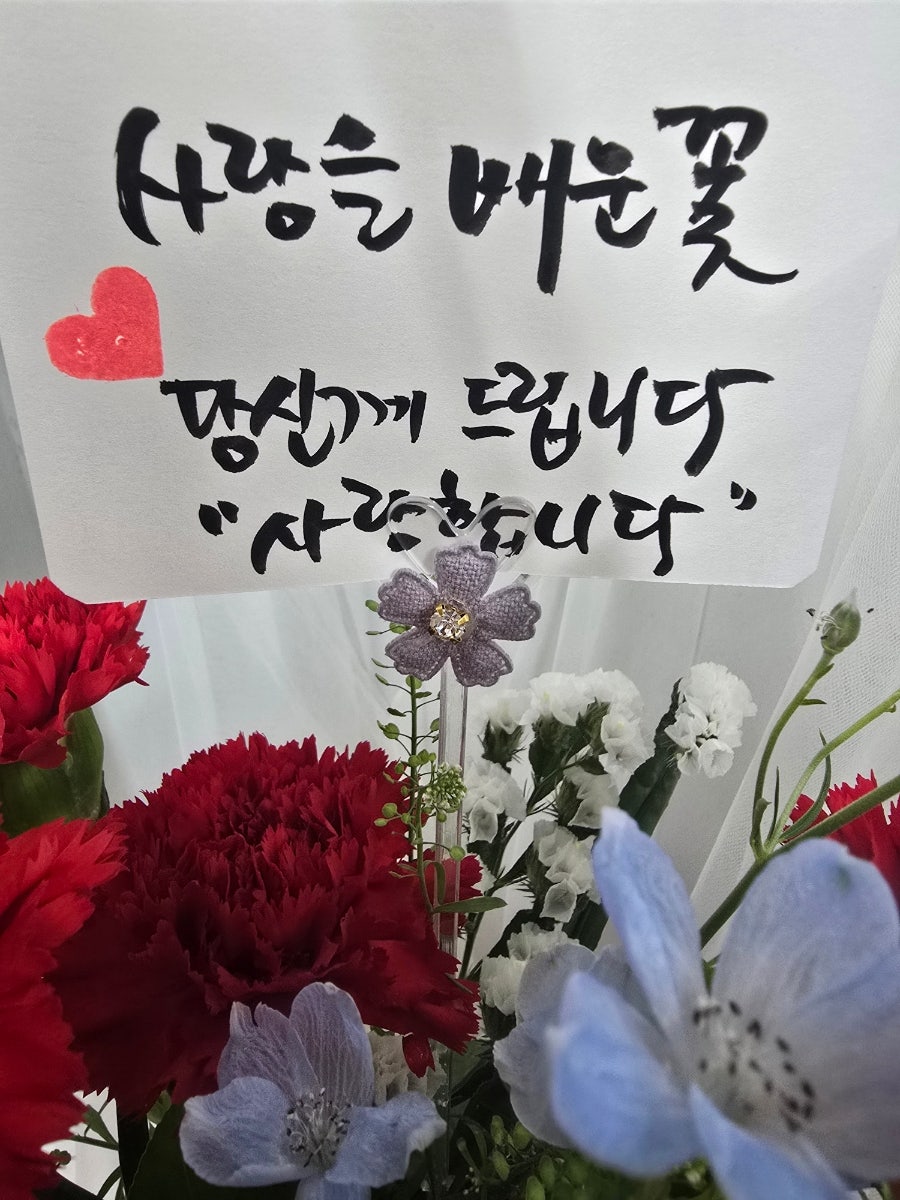 사랑을 배운 꽃
당신께 드립니다
"사랑합니다"